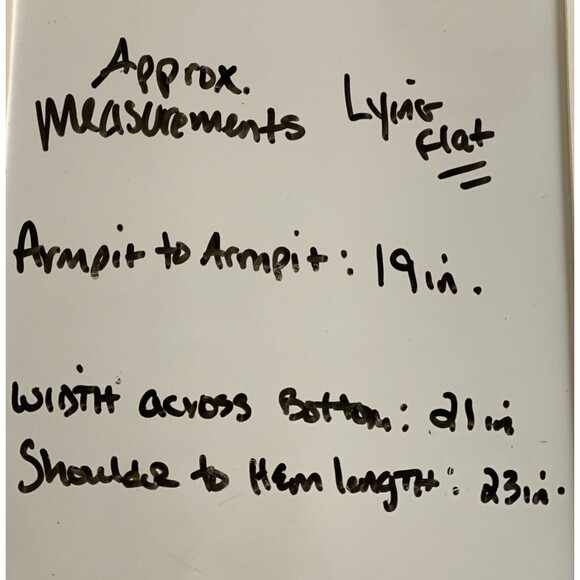 Approx.
Measurements
Lying
flat
Armpit to Armpit: 19in.
WIDTH across Bottom: 21in
Shoulder to Hem length: 23in.